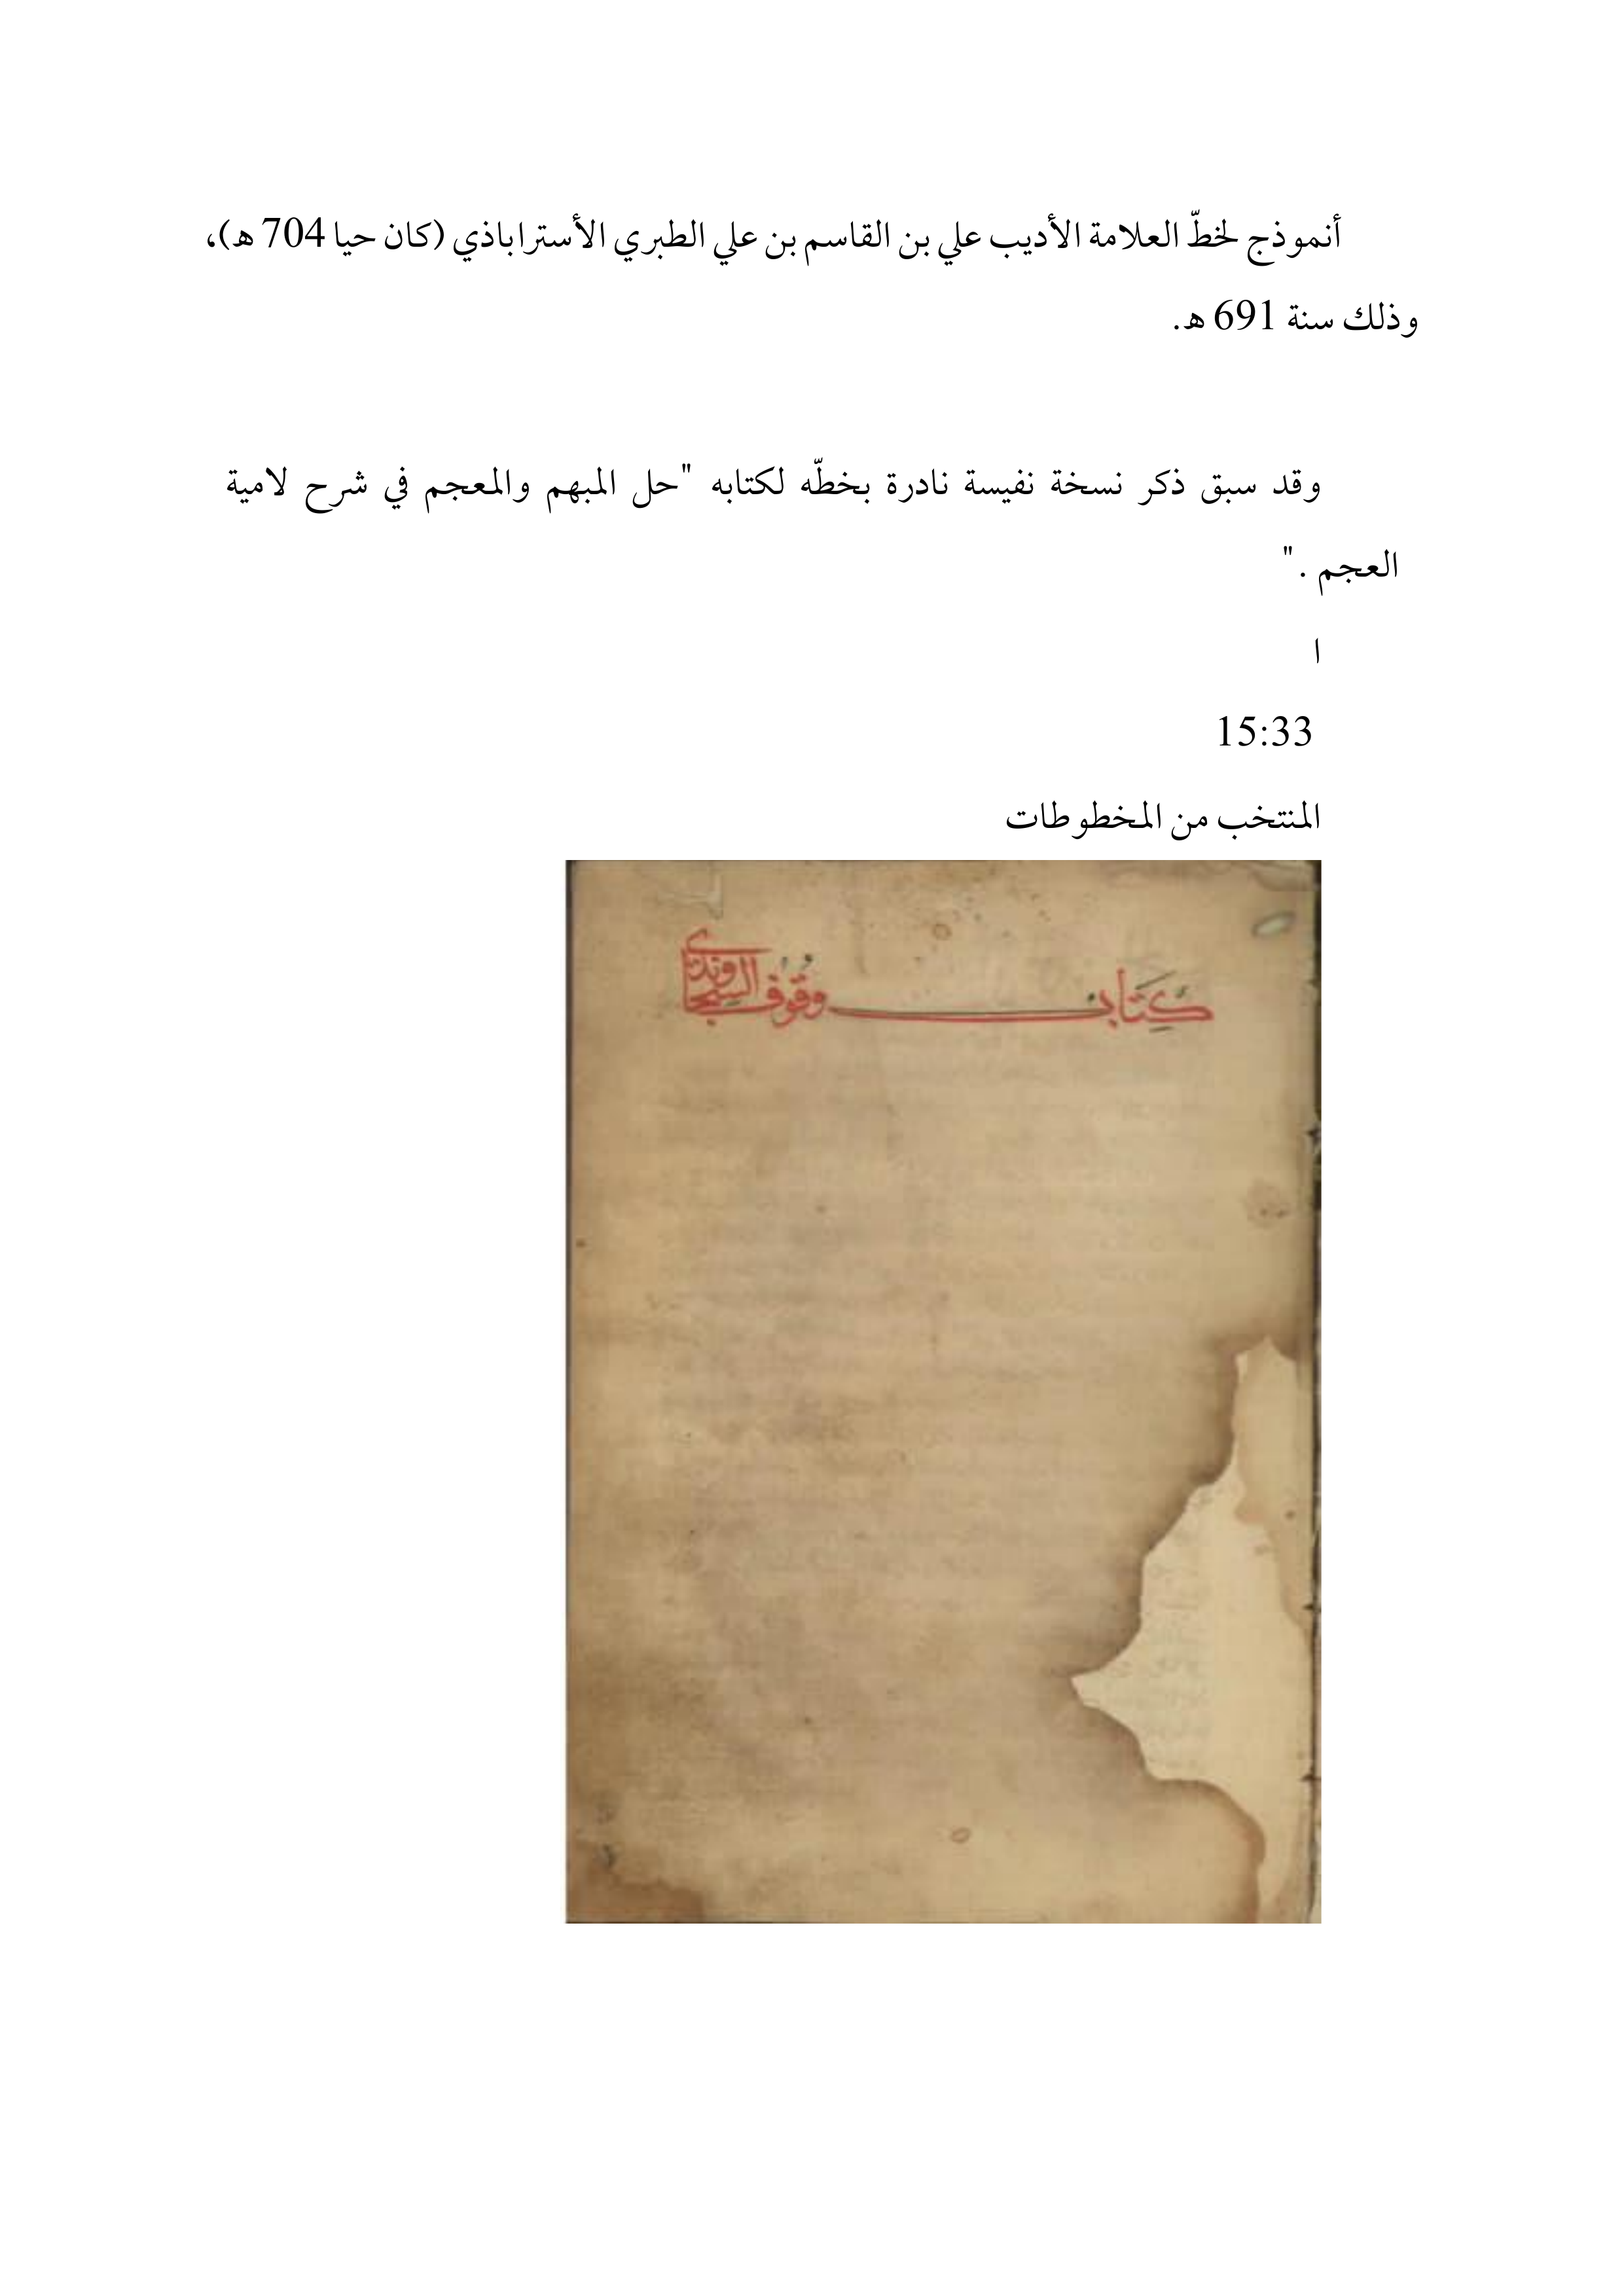 أنموذج لخطّ العلامة الأديب علي بن القاسم بن علي الطبري الأستراباذي (كان حيا 704 هـ)،
وذلك سنة 691 هـ.
وقد سبق ذكر نسخة نفيسة نادرة بخطّه لكتابه "حل المبهم والمعجم في شرح لامية
العجم ."
ا
15:33
المنتخب من المخطوطات
كتاب وقوف السجاوندي